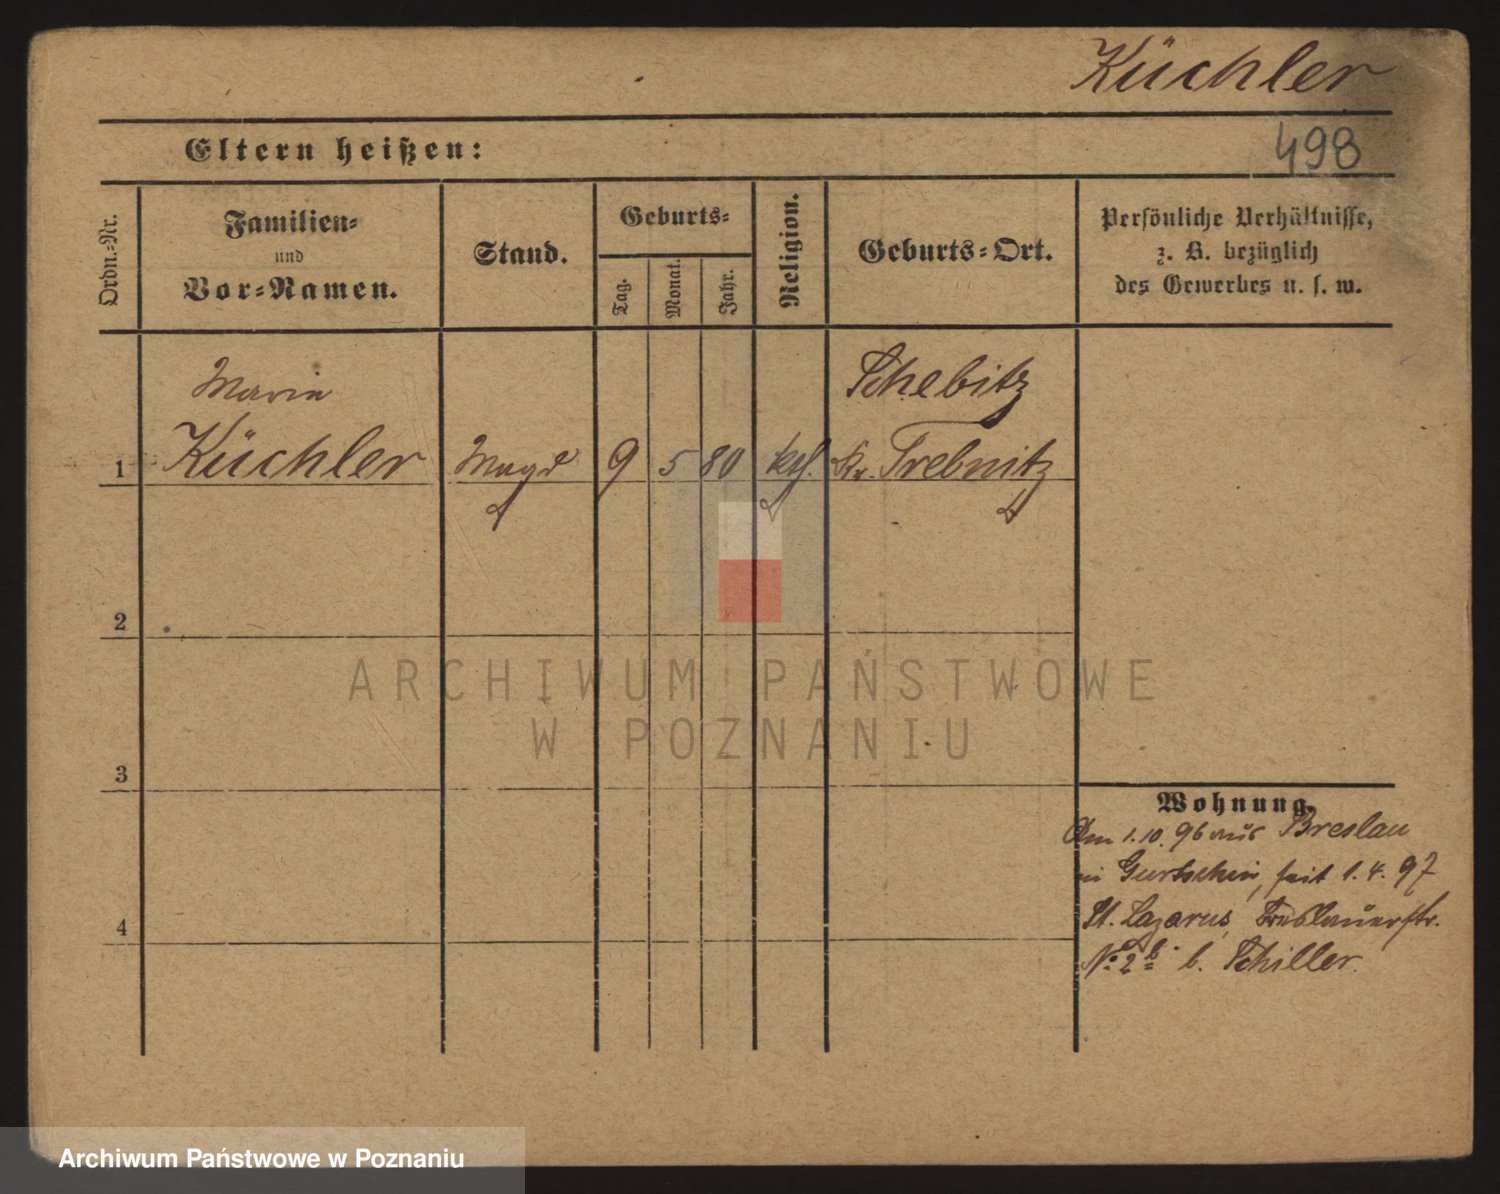 Küchler
498
Eltern heißen:
Ordn.-Nr.
Familien-
und
Vor-Namen.
Stand.
Geburts-
Tag.
Monat.
Jahr.
Religion.
Geburts-Ort.
Persönliche Verhältnisse,
z. B. bezüglich
des Gewerbes u. s. w.
Marie
Schebitz
1 Küchler Magd 9 5 80 kth. Kr. Trebnitz
2
3
4
Wohnung.
Am 1.10.96 aus Breslau
in Gurtschin, seit 1.4.97
St. Lazarus, Breslauerstr.
No. 2 b. b. Schiller.
ARCHIWUM PAŃSTWOWE
W POZNANIU
Archiwum Państwowe w Poznaniu